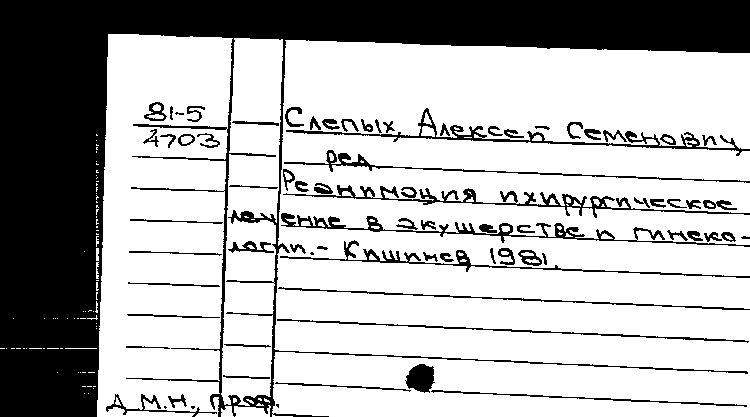 81-5
4703
Слепых, Алексей Семенович,
ред
Реанимация и хирургическое
лечение в акушерстве и гинеко-
логии. - Кишинев, 1981.
д.м.н., проф.